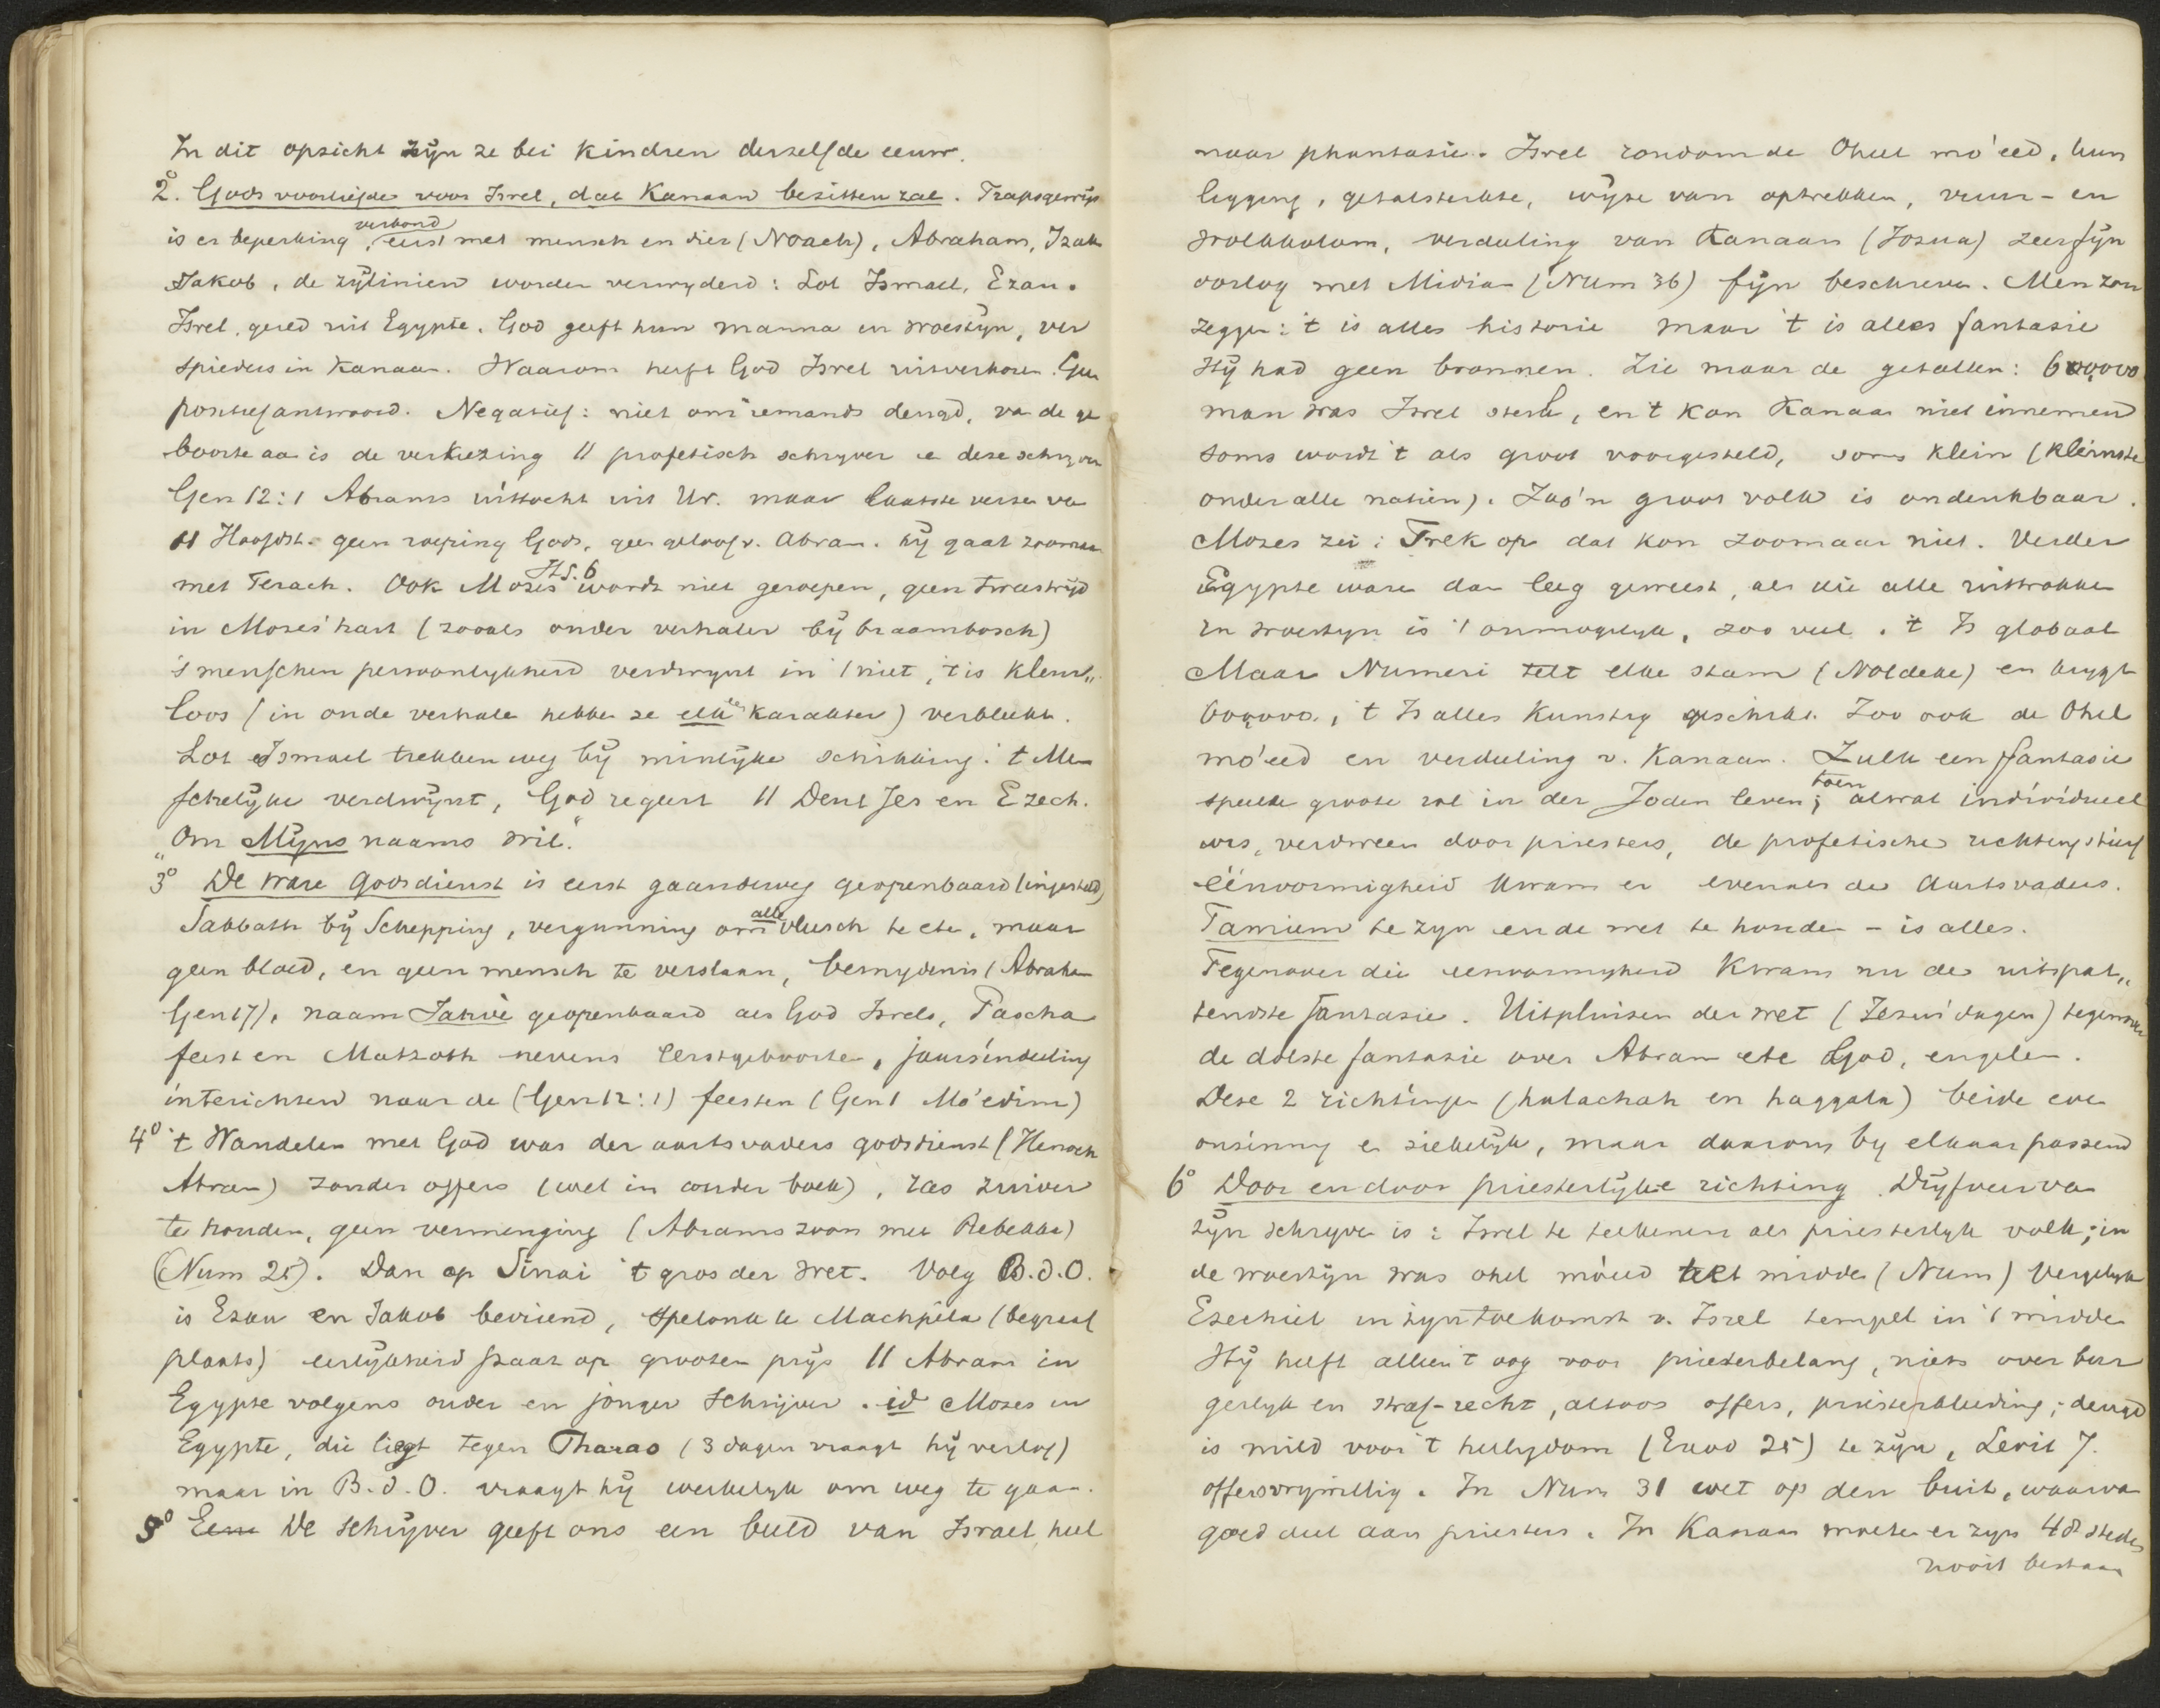 In dit opzicht zijn ze bei kindren derzelfde eeuw.
2.° Gods voorliefde voor Isrel, dat Kanaan bezitten zal. Trapsgewijs
is er beperking, verbond eerst met mensch en dier (Noach), Abraham, Izak
Jakob, de zijlinien worden verwyderd: Lot Ismael, Ezau.
Isrel gered uit Egypte. God geeft hun manna in woestyn, ver
spieders in Kanaan. Waarom heeft God Isrel uitverkoren. Geen
positief antwoord. Negatief: niet om iemands deugd, van de ge
boorte aan is de verkiezing // profetisch schryver en deze schryver
Gen 12:1 Abrams uittocht uit Ur. maar laatste verzen van
11 Hoofdst. geen roeping Gods, geen geloof v. Abram. hij gaat zoomaar
met Terach. Ook Mozes Hs. 6 wordt niet geroepen, geen tweestrijd
in Mozes' hart (zooals onder verhaler bij braambosch)
's menschen persoonlykheid verdwynt in 't niet, 't is kleur„
loos (in oude verhalen hebben ze elk een karakter) verbleekt.
Lot en Ismael trekken weg bij minlijke schikking. 't Men
schelijke verdwijnt, God regeert // Deut Jes en Ezech.
„Om Mijns naams wil."
3° De ware Godsdienst is eerst gaandeweg geopenbaard (ingesteld)
Sabbath bij Schepping, vergunning om alle vleesch te eten, maar
geen bloed, en geen mensch te verslaan, besnydenis (Abraham
Gen 17), naam Jahvè geopenbaard als God Isrels, Pascha
feest en Matzoth nevens eerstgeboorte, jaarsindeeling
interichten naar de (Gen 12:1) feesten (Gen 1 Mo'edim)
4° 't Wandelen met God was der aartsvaders godsdienst (Henoch
Abram) zonder offers (wel in ouder boek), ras zuiver
te houden, geen vermenging (Abrams zoon met Rebekka)
(Num 25). Dan op Sinai 't gros der wet. Volg B.d.O.
is Ezau en Jakob bevriend, spelonk te Machpela (begraaf
plaats) eerlijkheid staat op grooten prijs // Abram in
Egypte volgens ouder en jonger schrijver. id Mozes in
Egypte, die liegt tegen Pharao (3 dagen vraagt hij verlof)
maar in B.d.O. vraagt hij werkelyk om weg te gaan.
5° Een De schrijver geeft ons een beeld van Israel, heel
naar phantasie. Isrel rondom de Ohel mo'eed, hun
ligging, getalsterkte, wijze van optrekken, vuur- en
wolkkolom, verdeeling van Kanaan (Jozua) zeer fijn
oorlog met Midian (Num 36) fijn beschreven. Men zou
zeggen: 't is alles historie maar 't is alles fantasie
Hij had geen bronnen. Zie maar de getallen: 600,000
man was Isrel sterk, en 't kon Kanaan niet innemen
soms wordt 't als groot voorgesteld, soms klein (kleinste
onder alle natiën). Zoo'n groot volk is ondenkbaar.
Mozes zei: Trek op dat kon zoomaar niet. Verder
Egypte ware dan leeg geweest, als die alle uittrokken
In woestyn is 't onmogelyk, zoo veel. 't Is globaal
Maar Numeri telt elke stam (Noldeke) en krygt
600,000, 't Is alles kunstig geschikt. Zoo ook de Ohel
mo'eed en verdeeling v. Kanaan. Zulk een fantasie
speelde groote rol in der Joden leven toen; alwat individueel
was, verdween door priesters, de profetische richting stierf
eénvormigheid kwam er evenals de Aartsvaders.
Tamiem te zyn en de wet te houden – is alles.
Tegenover die eenvormigheid kwam nu de uitspat„
tendste fantasie. Uitpluizen der wet (Jezus' dagen) tegenover
de dolste fantasie over Abram etc God, engelen.
Deze 2 richtingen (halachah en haggala) beide even
onzinnig en ziekelijk, maar daarom by elkaar passend
6° Door en door priesterlijke richting. Drijfveer van
zijn schryven is: Isrel te teekenen als priesterlyk volk; in
de woestijn was ohel mo'eed te midden (Num) Vergelyk
Ezechiel in zyn toekomst v. Isrel tempel in 't midden
Hij heeft alleen 't oog voor priesterbelang, niets over bur
gerlyk en straf-recht, altoos offers, priesterkleeding; deugd
is mild voor 't heiligdom (Exod 25) te zijn, Levit 7.
offersvrywillig. In Num 31 wet op den buit, waarvan
goed deel aan priesters. In Kanaan moeten er zyn 48 steden
nooit bestaan